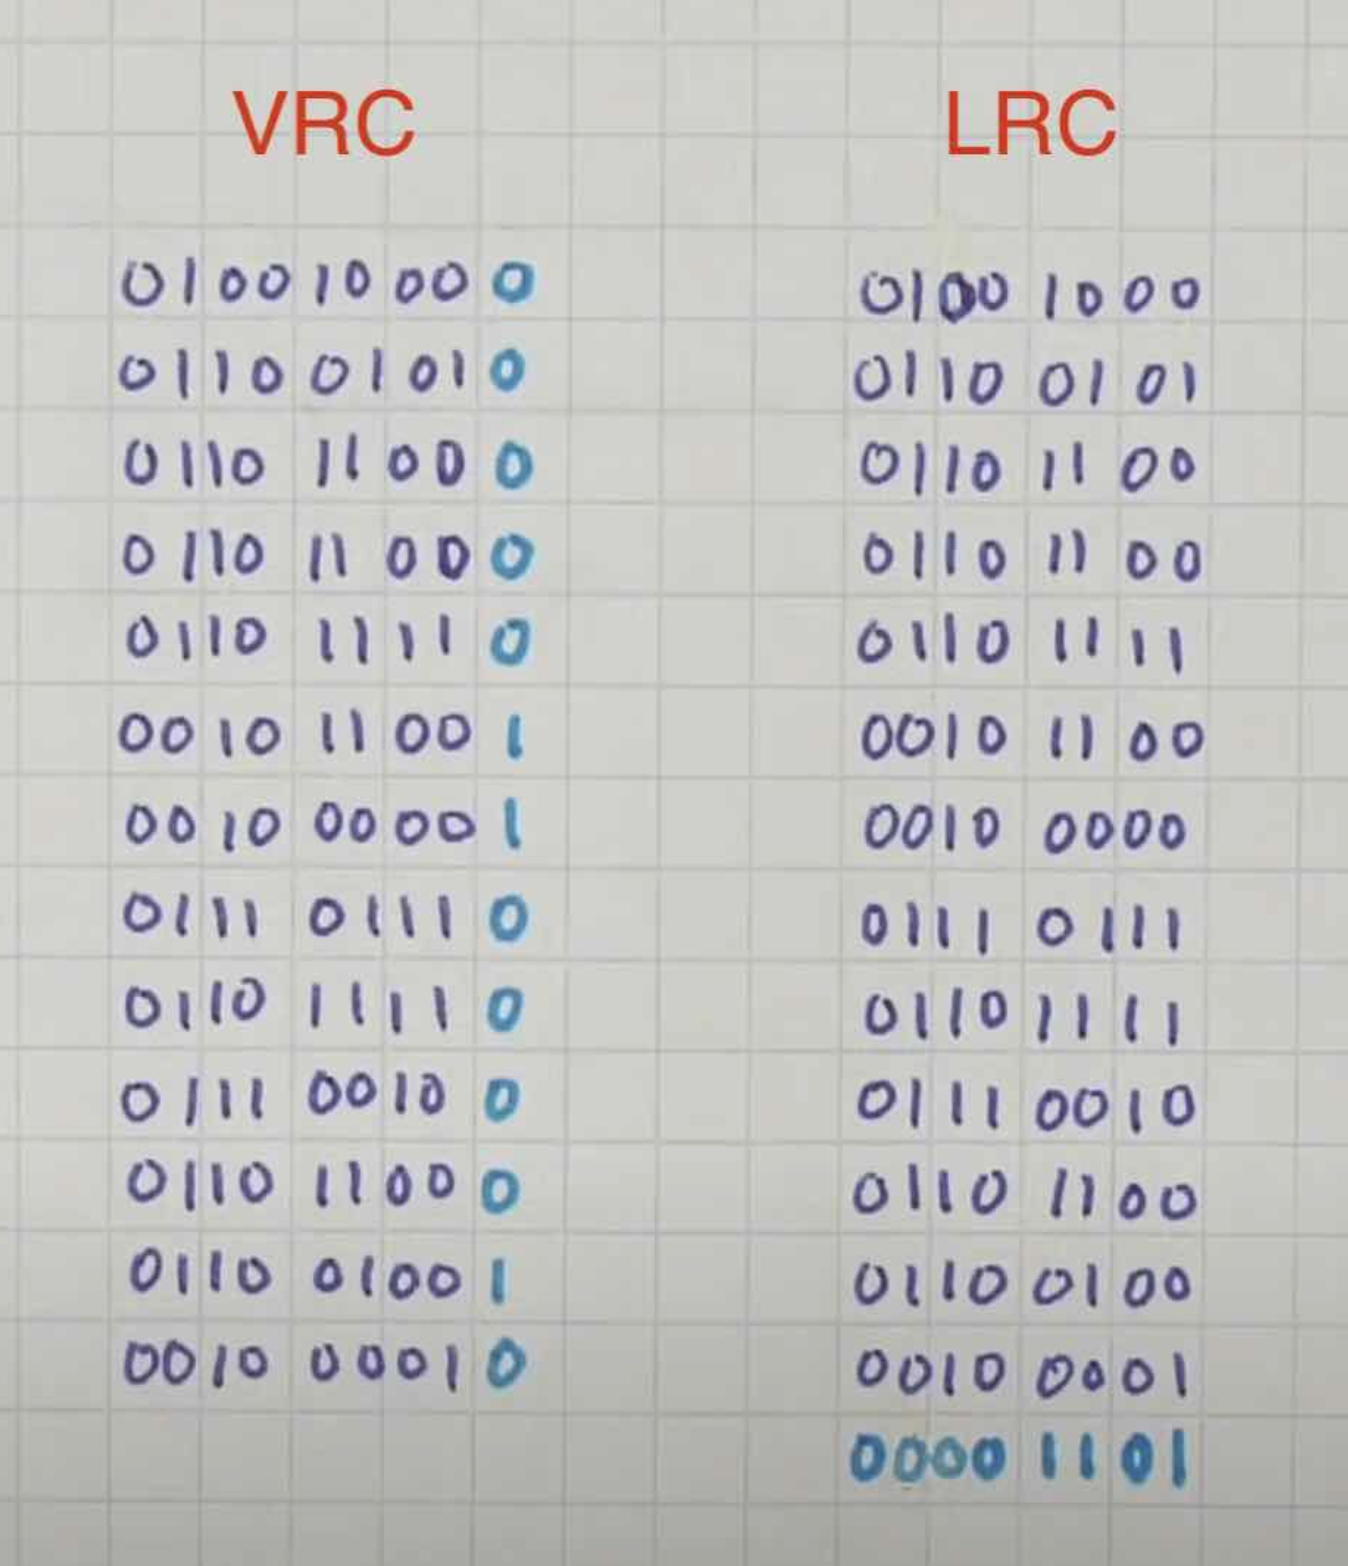 VRC
01001000 0
01100101 0
0110 1100 0
0110 1100 0
0110 1111 0
0010 1100 1
0010 0000 1
0111 0111 0
0110 1111 0
0111 0010 0
0110 1100 0
0110 0100 1
0010 0001 0
LRC
0100 1000
0110 0101
0110 1100
0110 1100
0110 1111
0010 1100
0010 0000
0111 0111
0110 1111
0111 0010
0110 1100
0110 0100
0010 0001
0000 1101